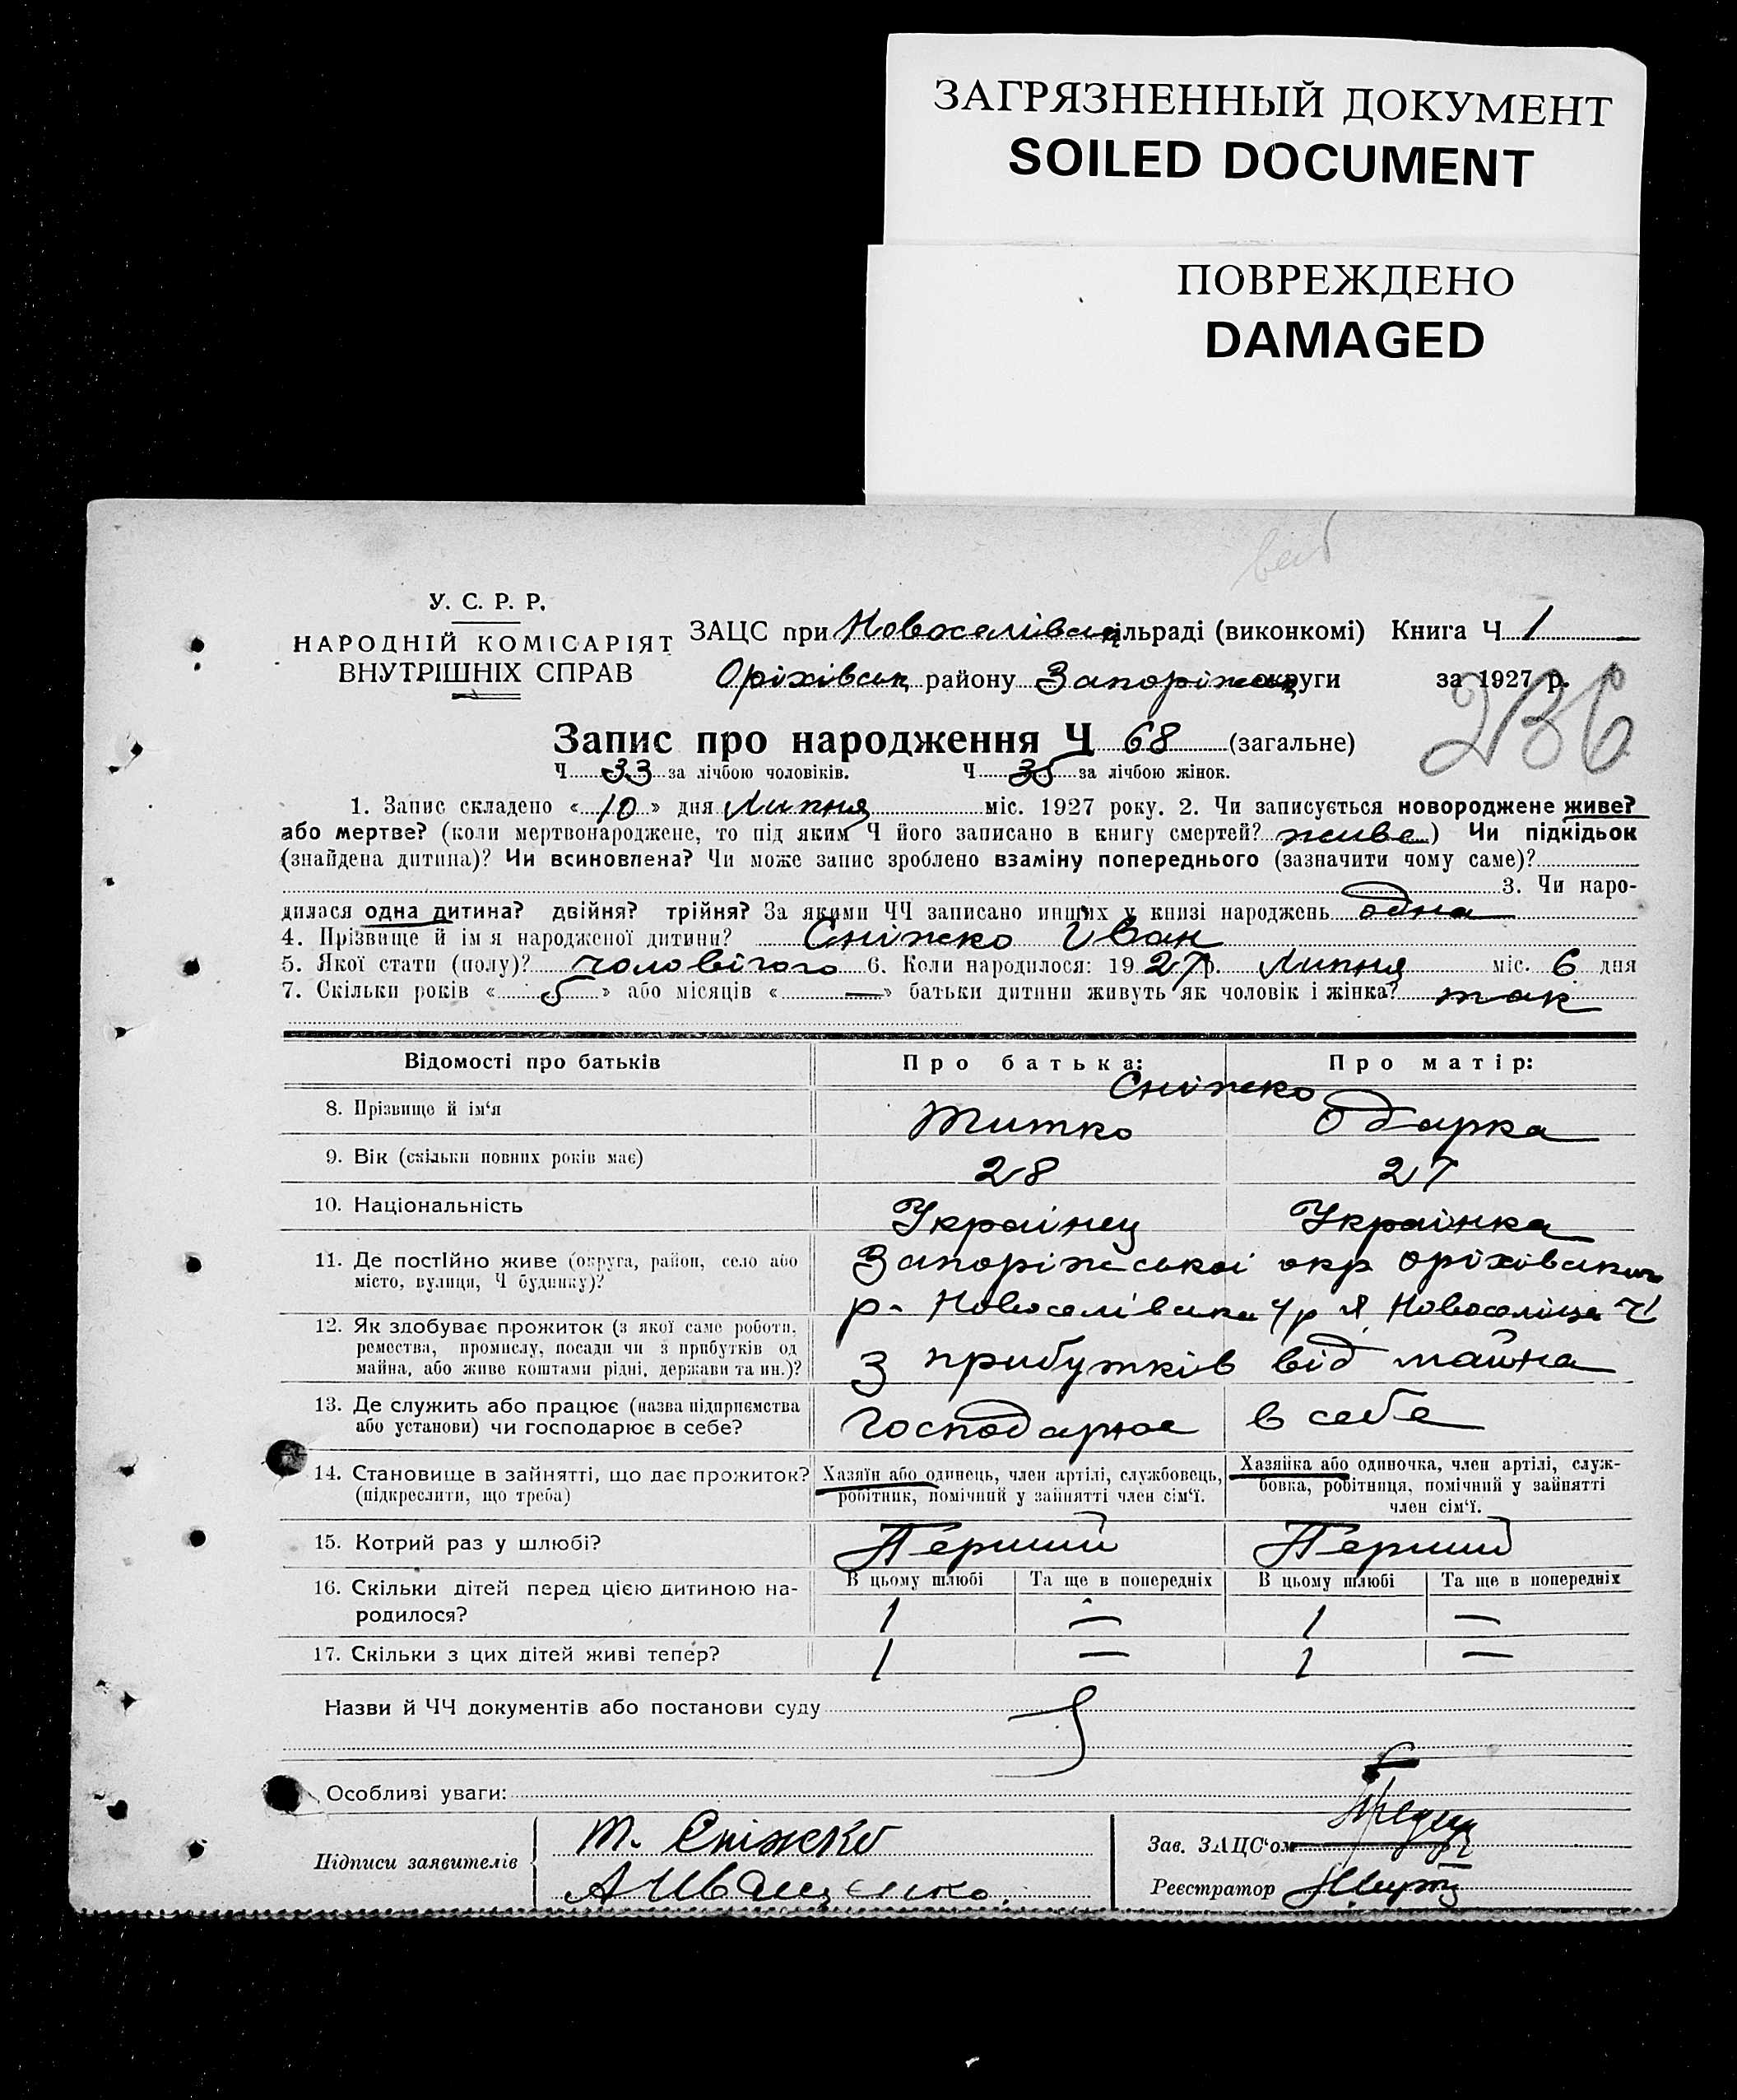 ЗАГРЯЗНЕННЫЙ ДОКУМЕНТ
SOILED DOCUMENT
ПОВРЕЖДЕНО
DAMAGED
У. С. Р. Р.
НАРОДНІЙ КОМІСАРІЯТ
ВНУТРІШНІХ СПРАВ
ЗАЦС при Новоселівськ сільраді (виконкомі) Книга Ч 1
Оріхівськ району Запоріжськ округи за 1927 р.
236
Запис про народження Ч 68 (загальне)
Ч 33 за лічбою чоловіків. Ч 35 за лічбою жінок.
1. Запис складено «10» дня Липня міс. 1927 року. 2. Чи записується новороджене живе?
або мертве? (коли мертвонароджене, то під яким Ч його записано в книгу смертей? живе) Чи підкідьок
(знайдена дитина)? Чи всиновлена? Чи може запис зроблено взаміну попереднього (зазначити чому саме)?
3. Чи наро-
дилася одна дитина? двійня? трійня? За якими ЧЧ записано инших у книзі народжень одна
4. Прізвище й ім я народженої дитини? Сніжко Іван
5. Якої стати (полу)? чоловічого 6. Коли народилося: 1927 р. Липня міс. 6 дня
7. Скільки років «5» або місяців «—» батьки дитини живуть як чоловік і жінка? так
Відомості про батьків Про батька: Про матір:
Сніжко
8. Прізвище й ім‘я Титко Одарка
9. Вік (скільки повних років має) 28 27
10. Національність Українец Українка
11. Де постійно живе (округа, район, село або Запоріжської окр Оріхівського
місто, вулиця, Ч будинку)? р- Новоселівська с/р Новоселиця
12. Як здобуває прожиток (з якої саме роботи,
ремества, промислу, посади чи з прибутків од з прибутків від майна
майна, або живе коштами рідні, держави та ин.)?
13. Де служить або працює (назва підприємства Господарює в себе
або установи) чи господарює в себе?
14. Становище в зайнятті, що дає прожиток? Хазяїн або одинець, член артілі, службовець, Хазяйка або одиночка, член артілі, служ-
(підкреслити, що треба) робітник, помічний у зайнятті член сім‘ї. бовка, робітниця, помічний у зайнятті
член сім‘ї.
15. Котрий раз у шлюбі? Перший Перший
16. Скільки дітей перед цією дитиною на- В цьому шлюбі Та ще в попередніх В цьому шлюбі Та ще в попередніх
родилося? 1 — 1 —
17. Скільки з цих дітей живі тепер? 1 — 1 —
Назви й ЧЧ документів або постанови суду
Особливі уваги:
Підписи заявителів Т. Сніжко
А Иващенко.
Зав. ЗАЦС‘ом
Реєстратор